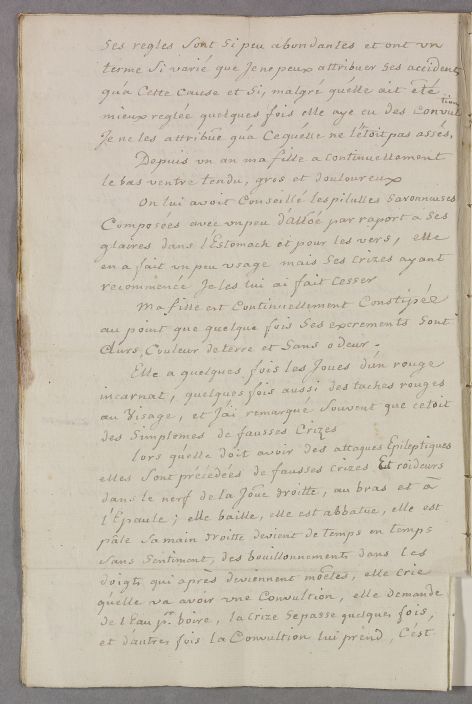 Ses regles sont si peu abondantes et ont un
terme si varié que Je ne peux attribuer ses accidents
qua Cette Cause et Si, malgré quélle ait été
mieux reglée quelques fois elle aye eu des Convultions
Je ne les attribuë qua Cequélle ne lètoit pas assés,
Depuis un an ma fille a continuellement
le bas ventre tendu, gros et douloureux
On lui avoit Conseillé les pilulles Savonneuses
Composées avec un peu d'alloé par raport a Ses
glaires dans l'Estomach et pour les vers, elle
en a fait un peu usage mais Ses Crizes ayant
recommencé Je les lui ai fait Cesser
Ma fille est Continuellement Constipée
au point que quelque fois Ses excrements Sont
durs, Couleur de terre et Sans odeur.
Elle a quelques fois les Joues d'un rouge
incarnat, quelques fois aussi des taches rouges
au Visage, et J'ai remarqué Souvent que cetoit
des Simptomes de fausses Crizes
Lors quélle doit avoir des attaques Epileptiques
elles Sont précédées de fausses crizes Et roideurs
dans le nerf de la Joüe droitte, au bras et a
l'Epaule; elle baille, elle est abbatue, elle est
pâle Sa main droitte devient de temps en temps
Sans Sentiment, des bouillonnements dans les
doigts qui après deviennent moëles, elle Crie
quélle va avoir une Convultion, elle demande
de l'Eau pr. boire, la Crize Sepasse quelques fois,
et d'autres fois la Convultion lui prend, C'ést